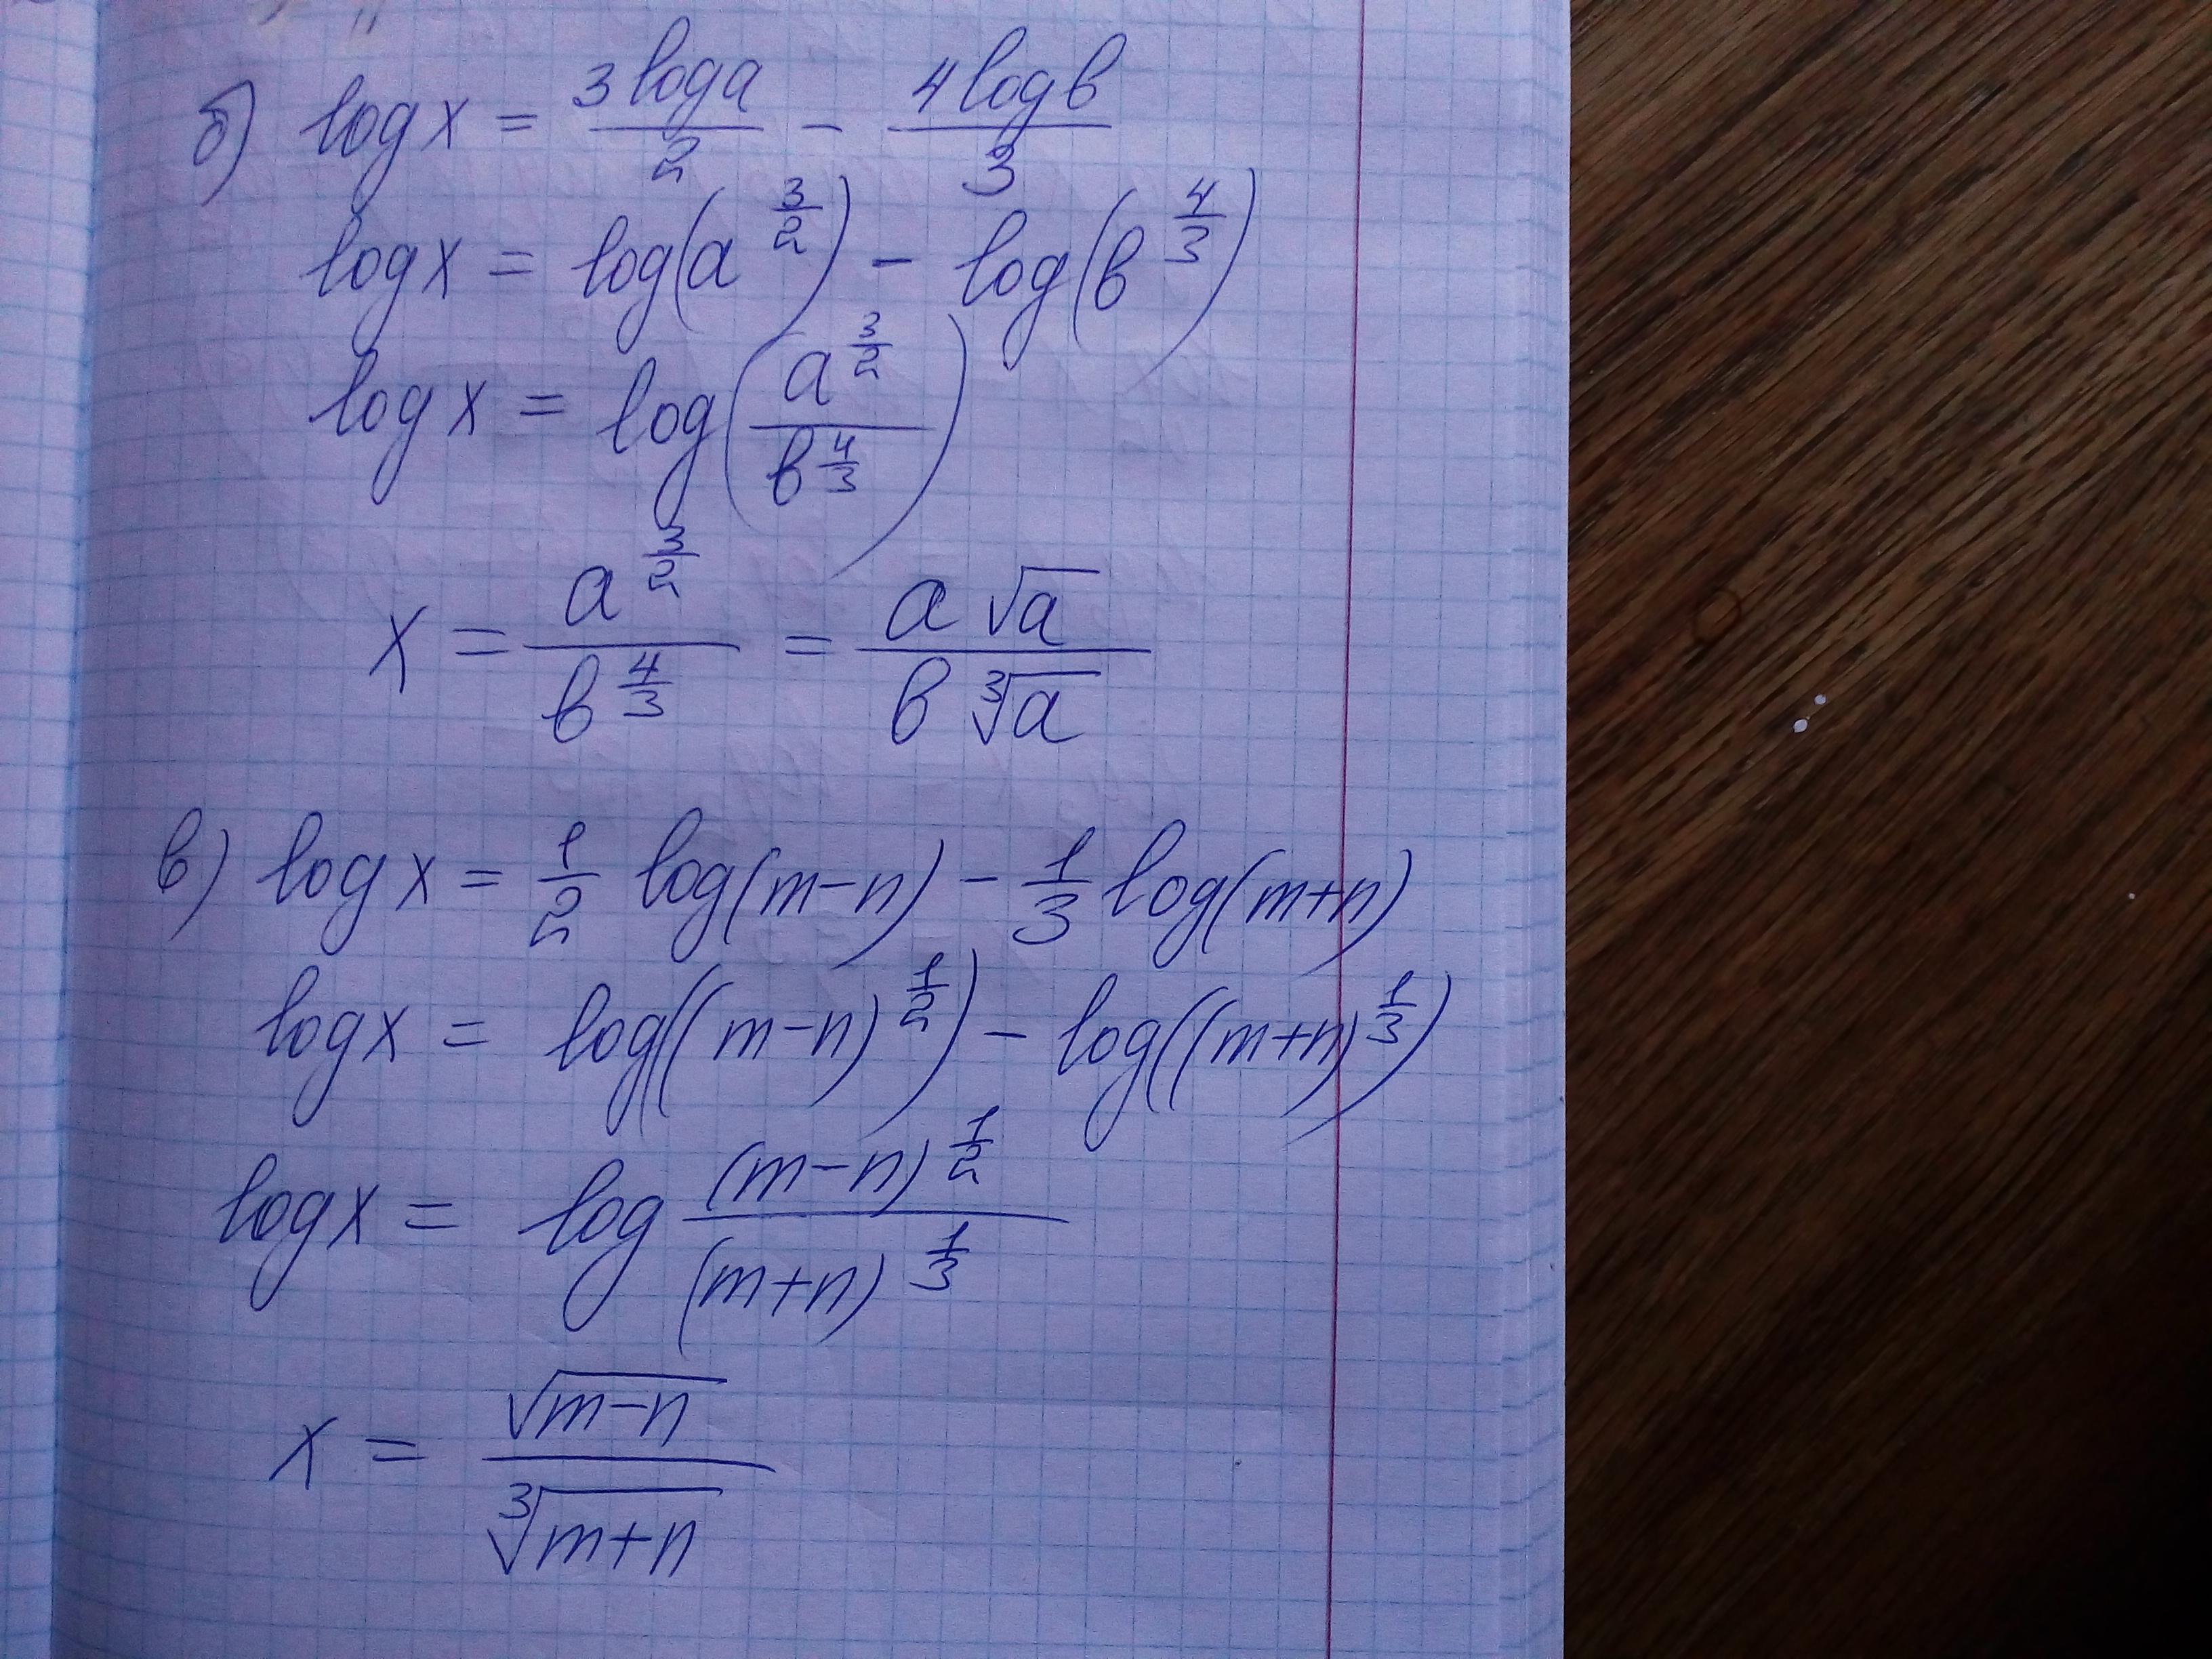 б) log x = 3 log a / 2 − 4 log b / 3
log x = log(a^(3/2)) − log(b^(4/3))
log x = log(a^(3/2) / b^(4/3))
x = a^(3/2) / b^(4/3) = a √a / b ∛a
в) log x = 1/2 log(m−n) − 1/3 log(m+n)
log x = log((m−n)^(1/2)) − log((m+n)^(1/3))
log x = log (m−n)^(1/2) / (m+n)^(1/3)
x = √(m−n) / ∛(m+n)